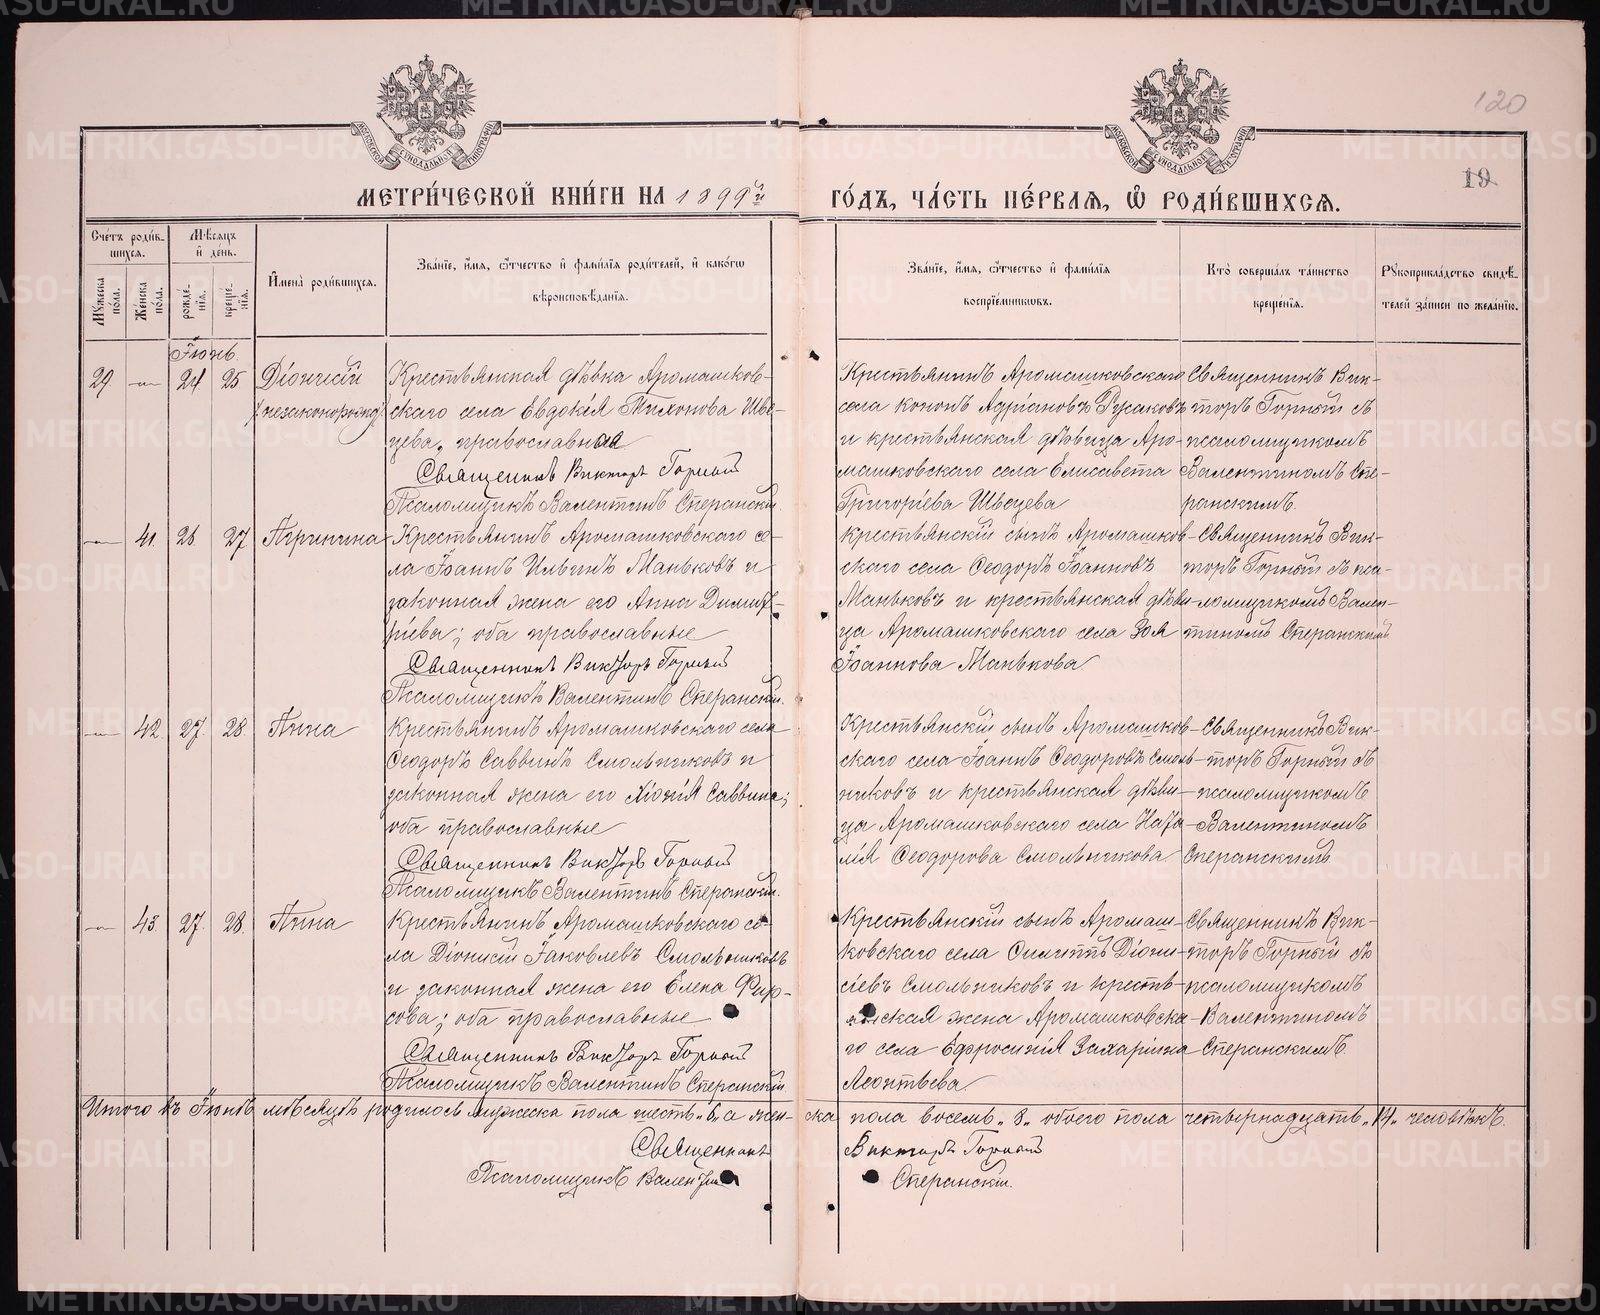 120
19
МЕТРИ́ЧЕСКОЙ КНИ́ГИ НА 1899й
ГО́ДЪ, ЧА́СТЬ ПЕ́РВАЯ, Ѽ РОДИ́ВШИХСЯ.
Сче́тъ роди́в-
шихся.
Му́жеска по́ла.
Же́нска по́ла.
Мѣ́сяцъ и де́нь.
рожде́-
нія.
креще́-
нія.
Имена̀ роди́вшихся.
Зва́ніе, и́мя, ѻ҆́тчество и фами́лія роди́телей, и како́гѡ
вѣроисповѣ́данія.
Зва́ніе, и́мя, ѻ҆́тчество и фами́лія
воспріе́мниковъ.
Кто̀ соверша́лъ та́инство
креще́нія.
Рꙋкоприкла́дство свидѣ́-
телей за́писи по жела́нію.
Іюнь.
29 — 24 25 Діонисій
(незаконорожд.)
Крестьянская дѣвка Аромашков-
скаго села Евдокія Тихонова Шве-
цева, православная
Священникъ Викторъ Горный
Псаломщикъ Валентинъ Сперанскій.
Крестьянинъ Аромашковскаго
села Кононъ Адріановъ Русаковъ
и крестьянская дѣвица Аро-
машковскаго села Елисавета
Григоріева Швецева
Священникъ Вик-
торъ Горный съ
псаломщикомъ
Валентиномъ Спе-
ранскимъ.
— 41. 26 27 Агрипина
Крестьянинъ Аромашковскаго се-
ла Іоаннъ Ильинъ Маньковъ и
законная жена его Анна Димит-
ріева; оба православные
Священникъ Викторъ Горный
Псаломщикъ Валентинъ Сперанскій.
Крестьянскій сынъ Аромашков-
скаго села Ѳеодоръ Іоанновъ
Маньковъ и крестьянская дѣви-
ца Аромашковскаго села Зоя
Іоаннова Манькова
Священникъ Вик-
торъ Горный съ пса-
ломщикомъ Вален-
тиномъ Сперанскимъ
— 42. 27. 28. Анна
Крестьянинъ Аромашковскаго села
Ѳеодоръ Саввинъ Смольниковъ и
законная жена его Хіонія Саввина;
оба православные
Священникъ Викторъ Горный
Псаломщикъ Валентинъ Сперанскій.
Крестьянскій сынъ Аромашков-
скаго села Іоаннъ Ѳеодоровъ Смоль-
никовъ и крестьянская дѣви-
ца Аромашковскаго села Ната-
лія Ѳеодорова Смольникова
Священникъ Вик-
торъ Горный съ
псаломщикомъ
Валентиномъ
Сперанскимъ
— 43. 27. 28. Анна
Крестьянинъ Аромашковскаго се-
ла Діонисій Іаковлевъ Смольниковъ
и законная жена его Елена Фир-
сова; оба православные
Священникъ Викторъ Горный
Псаломщикъ Валентинъ Сперанскій.
Крестьянскій сынъ Аромаш-
ковскаго села Діони-
сіевъ Смольниковъ и кресть-
янская жена Аромашковска-
го села Ефросинія Захаріина
Леонтьева
Священникъ Вик-
торъ Горный съ
псаломщикомъ
Валентиномъ
Сперанскимъ.
Итого въ Іюнѣ мѣсяцѣ родилось мужеска пола шесть „6„ а жен-ска пола восемь „8„ обоего пола четырнадцать „14„ человѣкъ.
Священникъ Викторъ Горный
Псаломщикъ Валентинъ Сперанскій.
METRIKI.GASO-URAL.RU